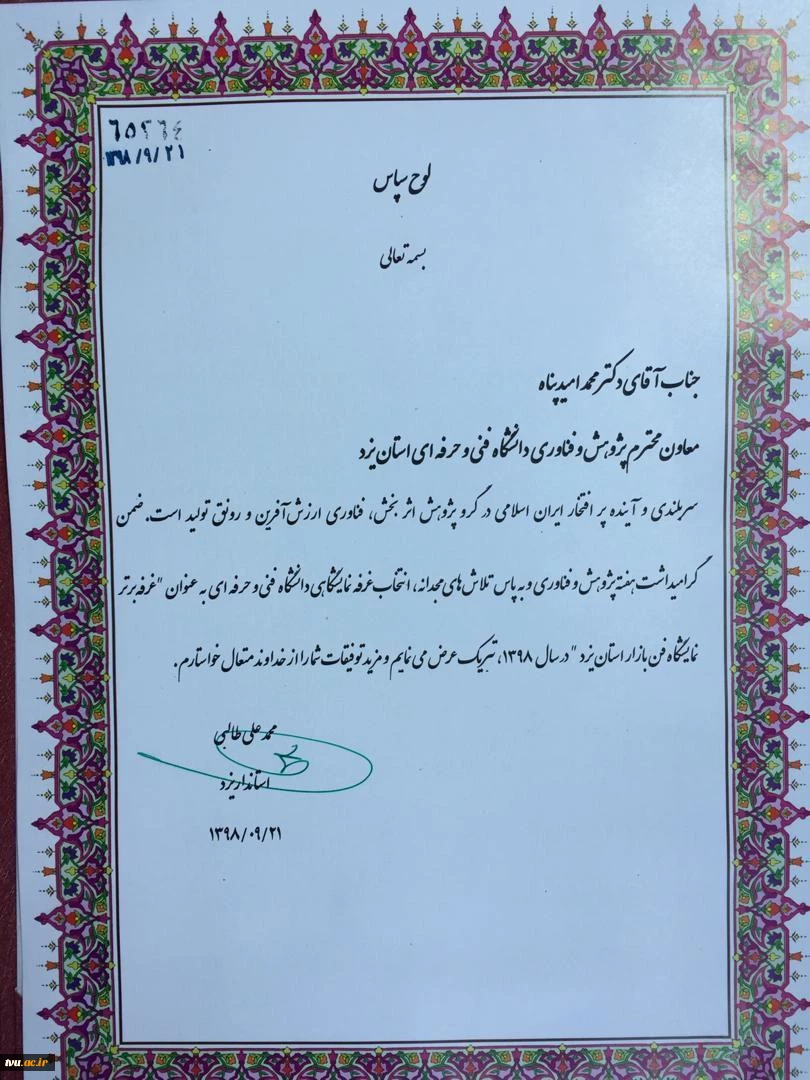 ۶۵۲۶۴
۱۳۹۸/۹/۲۱
لوح سپاس
بسمه تعالی
جناب آقای دکتر محمد امیدپناه
معاون محترم پژوهش و فناوری دانشگاه فنی و حرفه ای استان یزد
سربلندی و آینده پر افتخار ایران اسلامی در گرو پژوهش اثر بخش، فناوری ارزش‌آفرین و رونق تولید است. ضمن
گرامیداشت هفته پژوهش و فناوری و به پاس تلاش‌های مجدانه، انتخاب غرفه نمایشگاهی دانشگاه فنی و حرفه ای به عنوان "غرفه برتر
نمایشگاه فن بازار استان یزد" در سال ۱۳۹۸، تبریک عرض می نمایم و مزید توفیقات شما را از خداوند متعال خواستارم.
محمد علی طالبی
استاندار یزد
۱۳۹۸/۰۹/۲۱
tvu.ac.ir